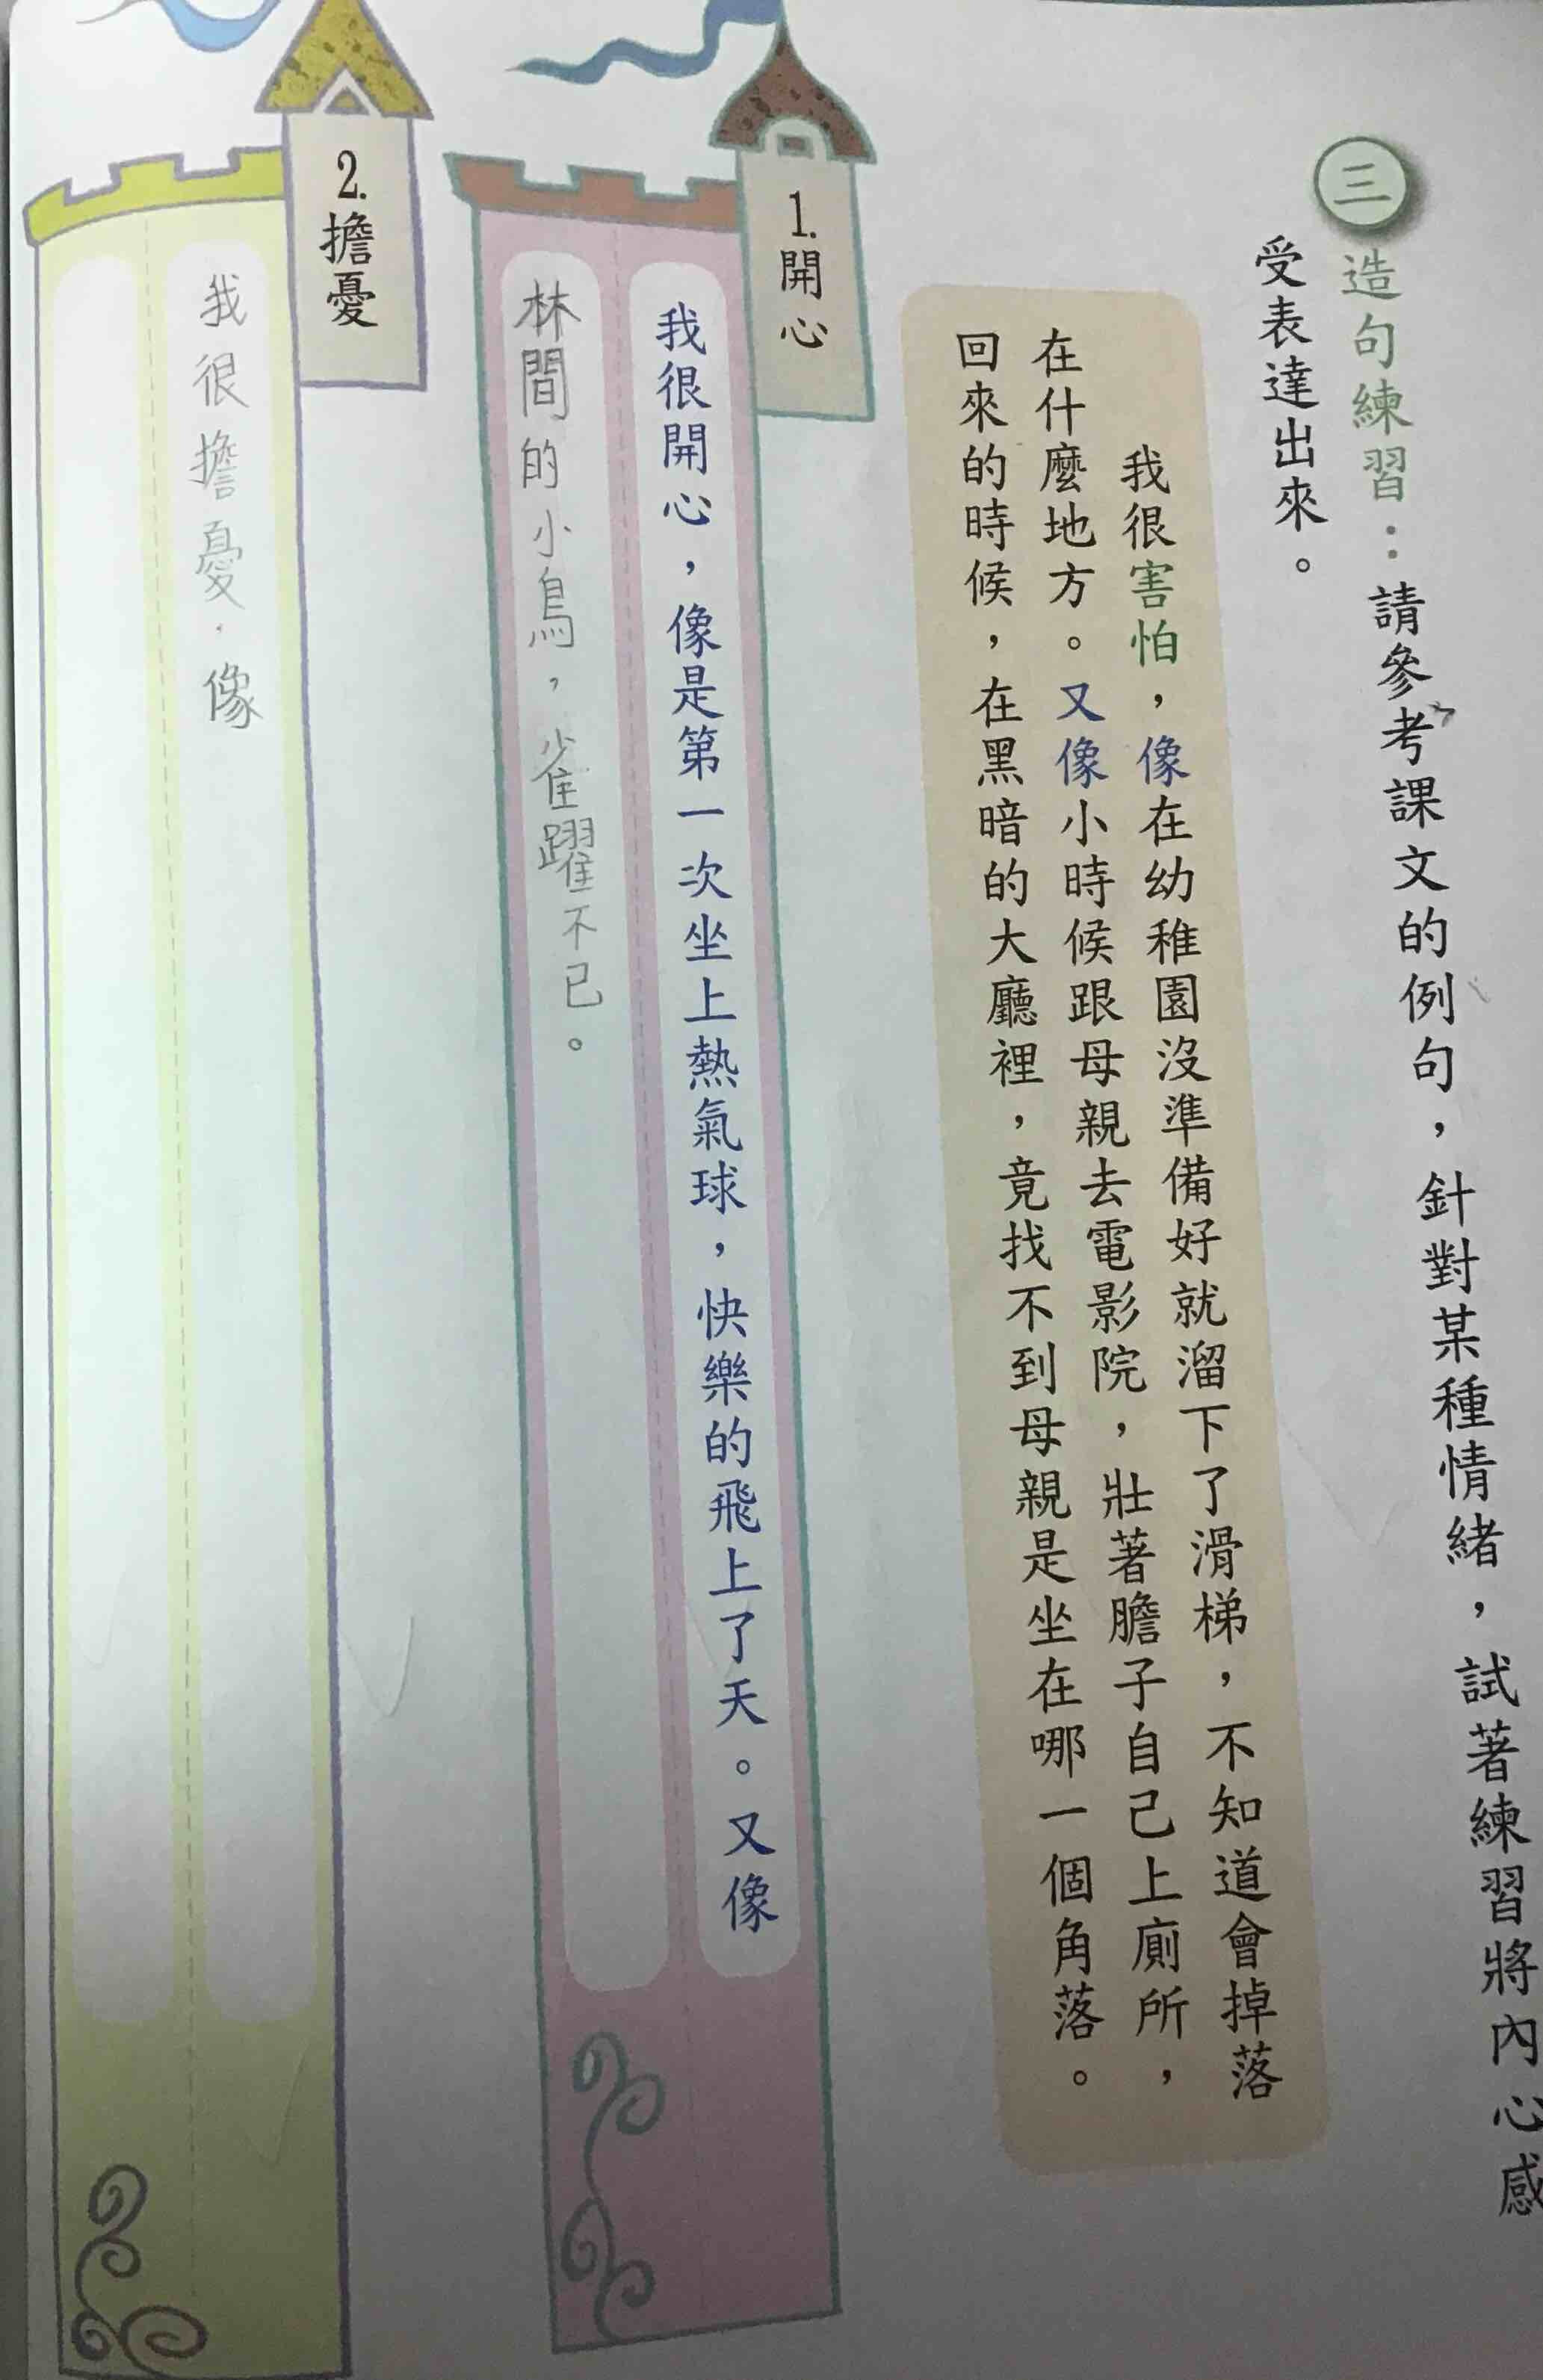 三 造句練習：請參考課文的例句，針對某種情緒，試著練習將內心感
受表達出來。
我很害怕，像在幼稚園沒準備好就溜下了滑梯，不知道會掉落
在什麼地方。又像小時候跟母親去電影院，壯著膽子自己上廁所，
回來的時候，在黑暗的大廳裡，竟找不到母親是坐在哪一個角落。
1.開心
我很開心，像是第一次坐上熱氣球，快樂的飛上了天。又像
林間的小鳥，雀躍不已。
2.擔憂
我很擔憂，像